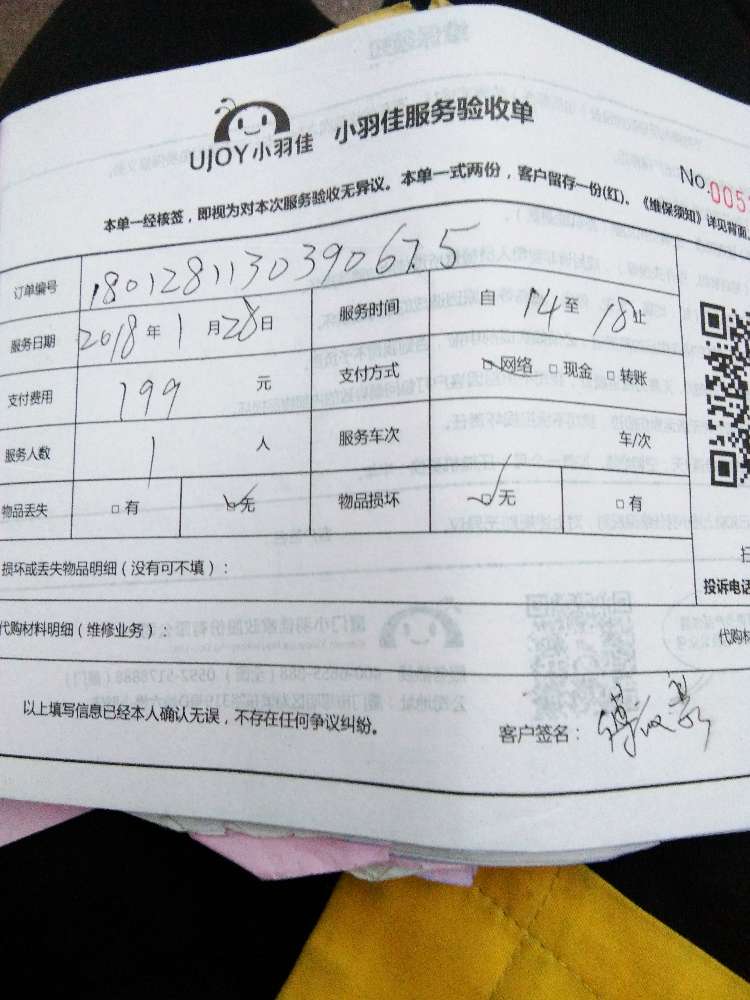 UJOY小羽佳 小羽佳服务验收单
No.005
本单一经核签，即视为对本次服务验收无异议。本单一式两份，客户留存一份(红)。《维保须知》详见背面。
订单编号 180128113039067.5
服务日期 2018 年 1 月 28 日 服务时间 自 14 至 18 止
支付费用 199 元 支付方式 网络 现金 转账
服务人数 1 人 服务车次 车/次
物品丢失 有 无 物品损坏 无 有
损坏或丢失物品明细（没有可不填）：
投诉电话
代购材料明细（维修业务）： 代购材
以上填写信息已经本人确认无误，不存在任何争议纠纷。 客户签名：